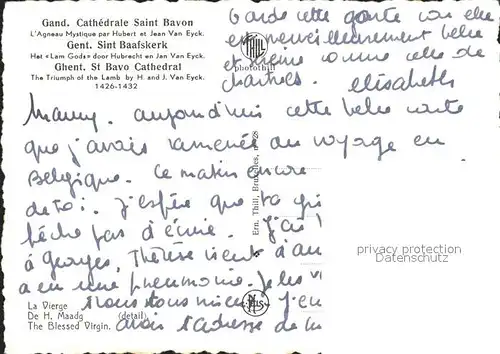 Gand. Cathédrale Saint Bavon
L'Agneau Mystique par Hubert et Jean Van Eyck.
Gent. Sint Baafskerk
Het «Lam Gods» door Hubrecht en Jan Van Eyck.
Ghent. St Bavo Cathedral
The Triumph of the Lamb by H. and J. Van Eyck.
1426-1432
THILL
photothill
Garde cette carte car elle
est merveilleusement belle
et comme celle de
chartres. Elisabeth
aujourd'hui cette belle carte
que j'avais ramenée du voyage en
Belgique. Ce matin encore
de toi. J'espère que ta
pêche pas d'écrire. J'ai
à Georges, Thérèse vient d'au
a eu une pneumonie. Je les
Nous tous j'en
avais l'adresse de
Ern. Thill, Bruxelles, n°
La Vierge
De H. Maagd (detail)
The Blessed Virgin.
NELS
privacy protection
VILLE-DATA.COM